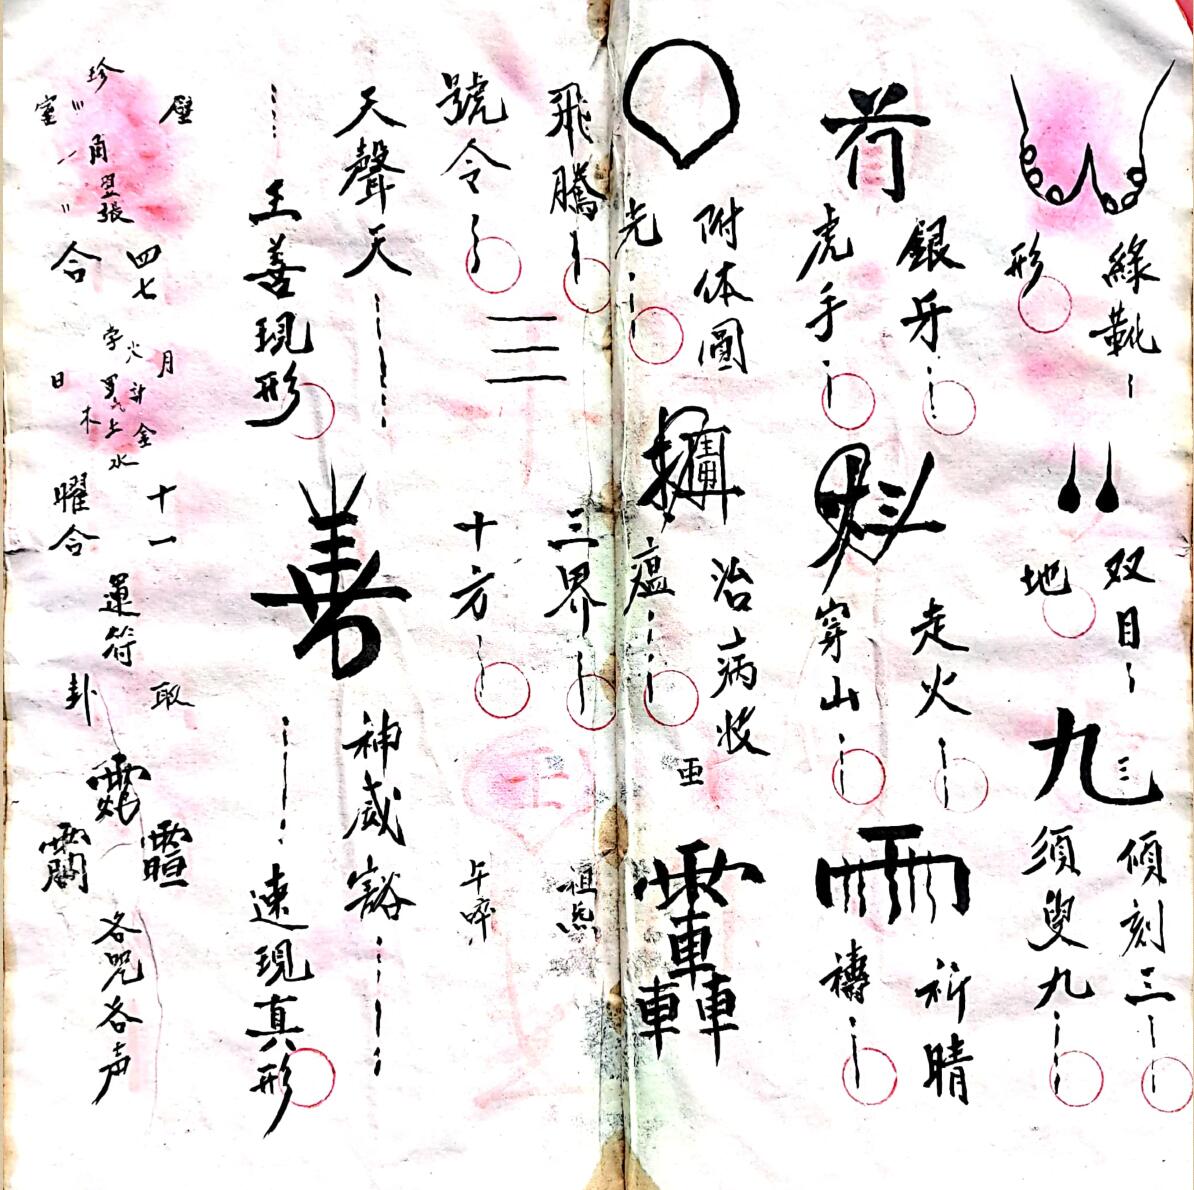 綠靴
形
双目
地
九
三
傾刻三
須臾九
符
銀牙
虎手
走火
穿山
雨
祈晴
禱
附体圓
光
治病收
瘟
飛騰
號令
三
三界
十方
祖炁
午啐
天聲天
王善現形
善
神威豁
速現真形
壁
室
珍
角翌張
四七
合
月
日
孛火計
羅炁土金
木
水
十一
曜合
運符
取
卦
各咒各声